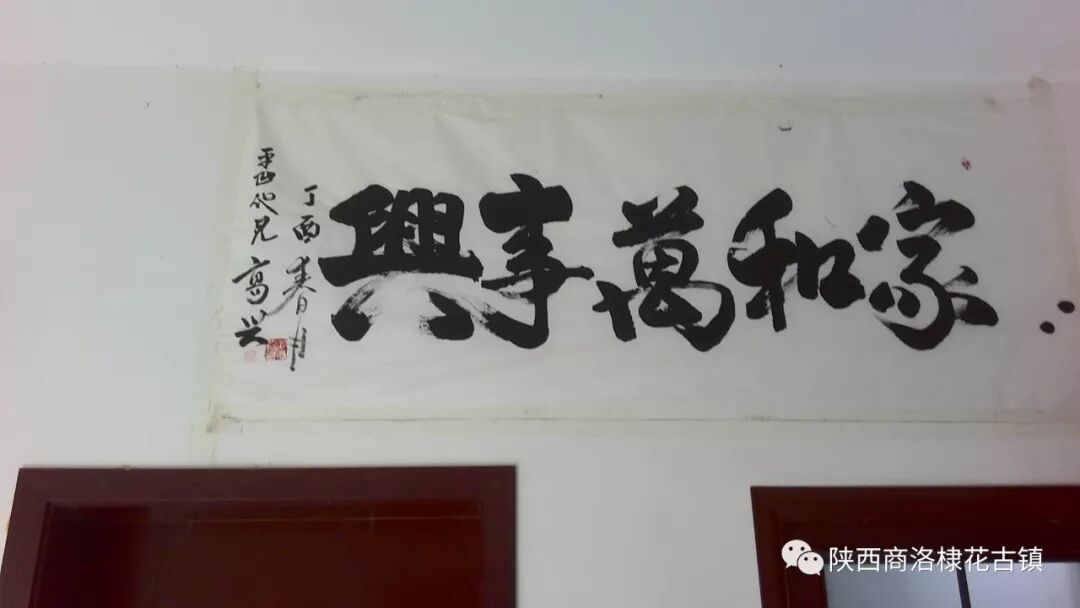 家和萬事興
丁酉春月
高兴
陕西商洛棣花古镇